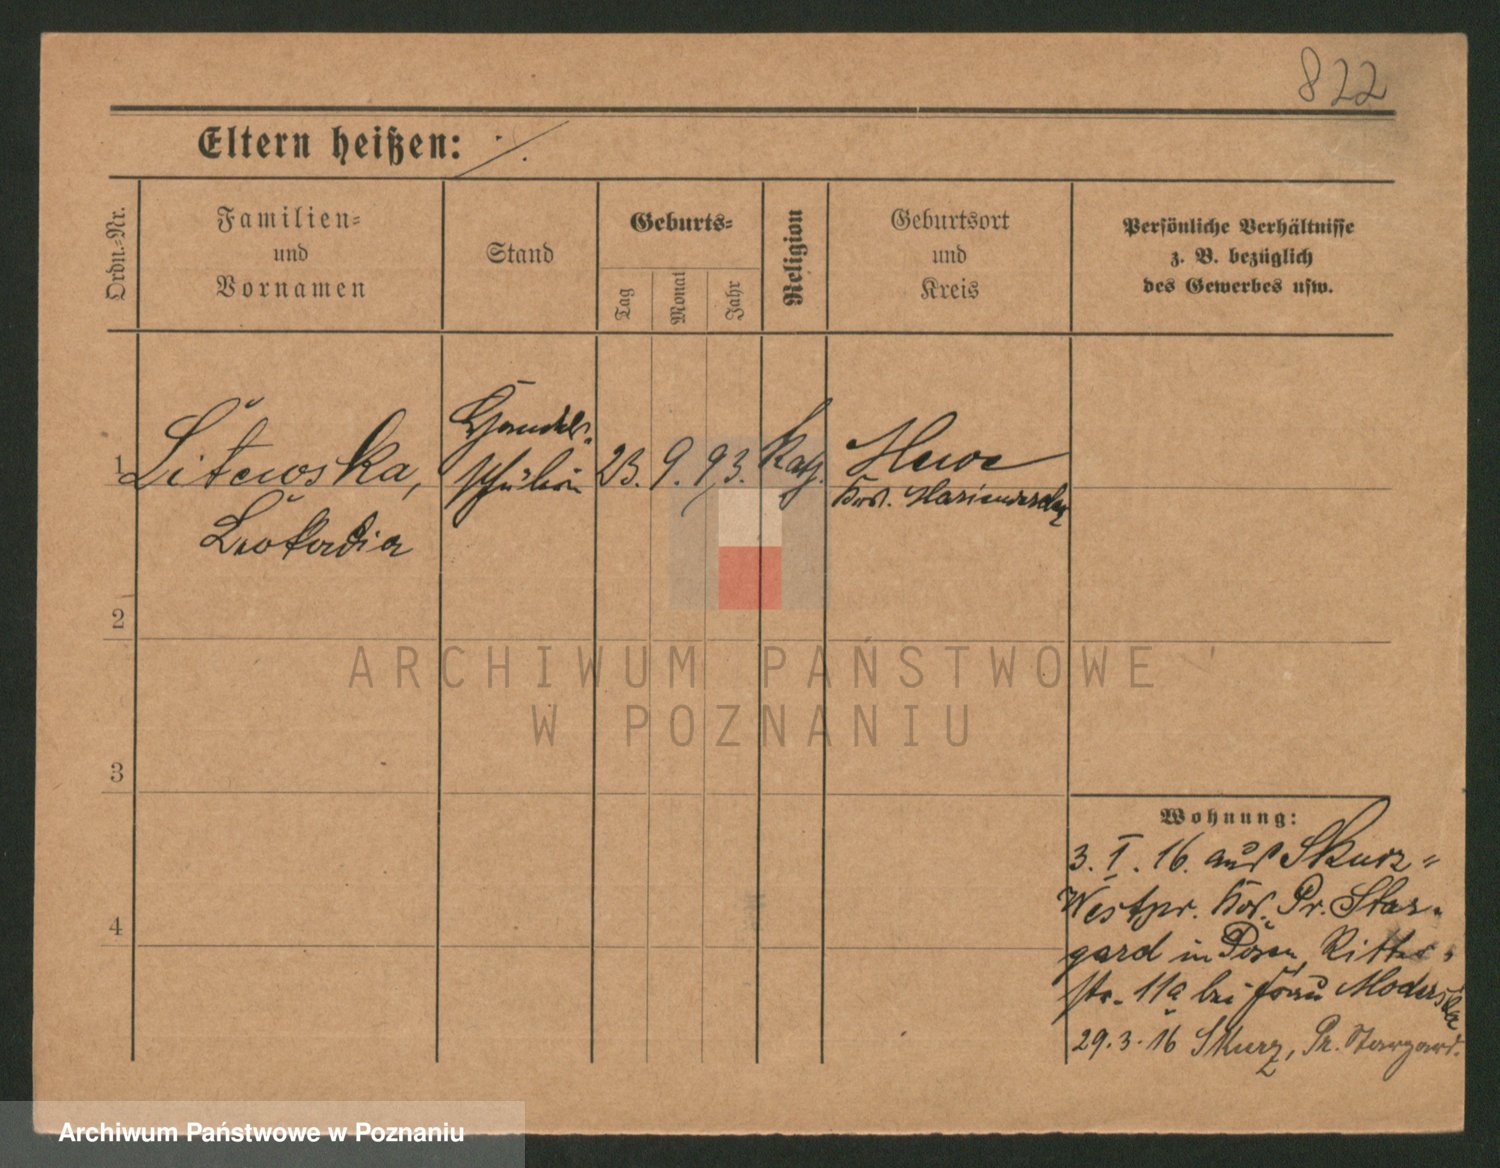 822
Eltern heißen: ./.
Ordn.=Nr.
Familien=
und
Vornamen
Stand
Geburts=
Tag
Monat
Jahr
Religion
Geburtsort
und
Kreis
Persönliche Verhältnisse
z. B. bezüglich
des Gewerbes usw.
1 Litewska,
Leokadia
Handels-
schülerin
23. 9. 93. Kath.
Mewe
Krs. Marienwerder
2
3
4
Wohnung:
3. I. 16. aus Skurz=
Westpr. Krs. Pr. Star-
gard in Posen, Ritter-
str. 11a bei Frau Moderska
29.3.16 Skurz, Pr. Stargard.
ARCHIWUM PAŃSTWOWE
W POZNANIU
Archiwum Państwowe w Poznaniu